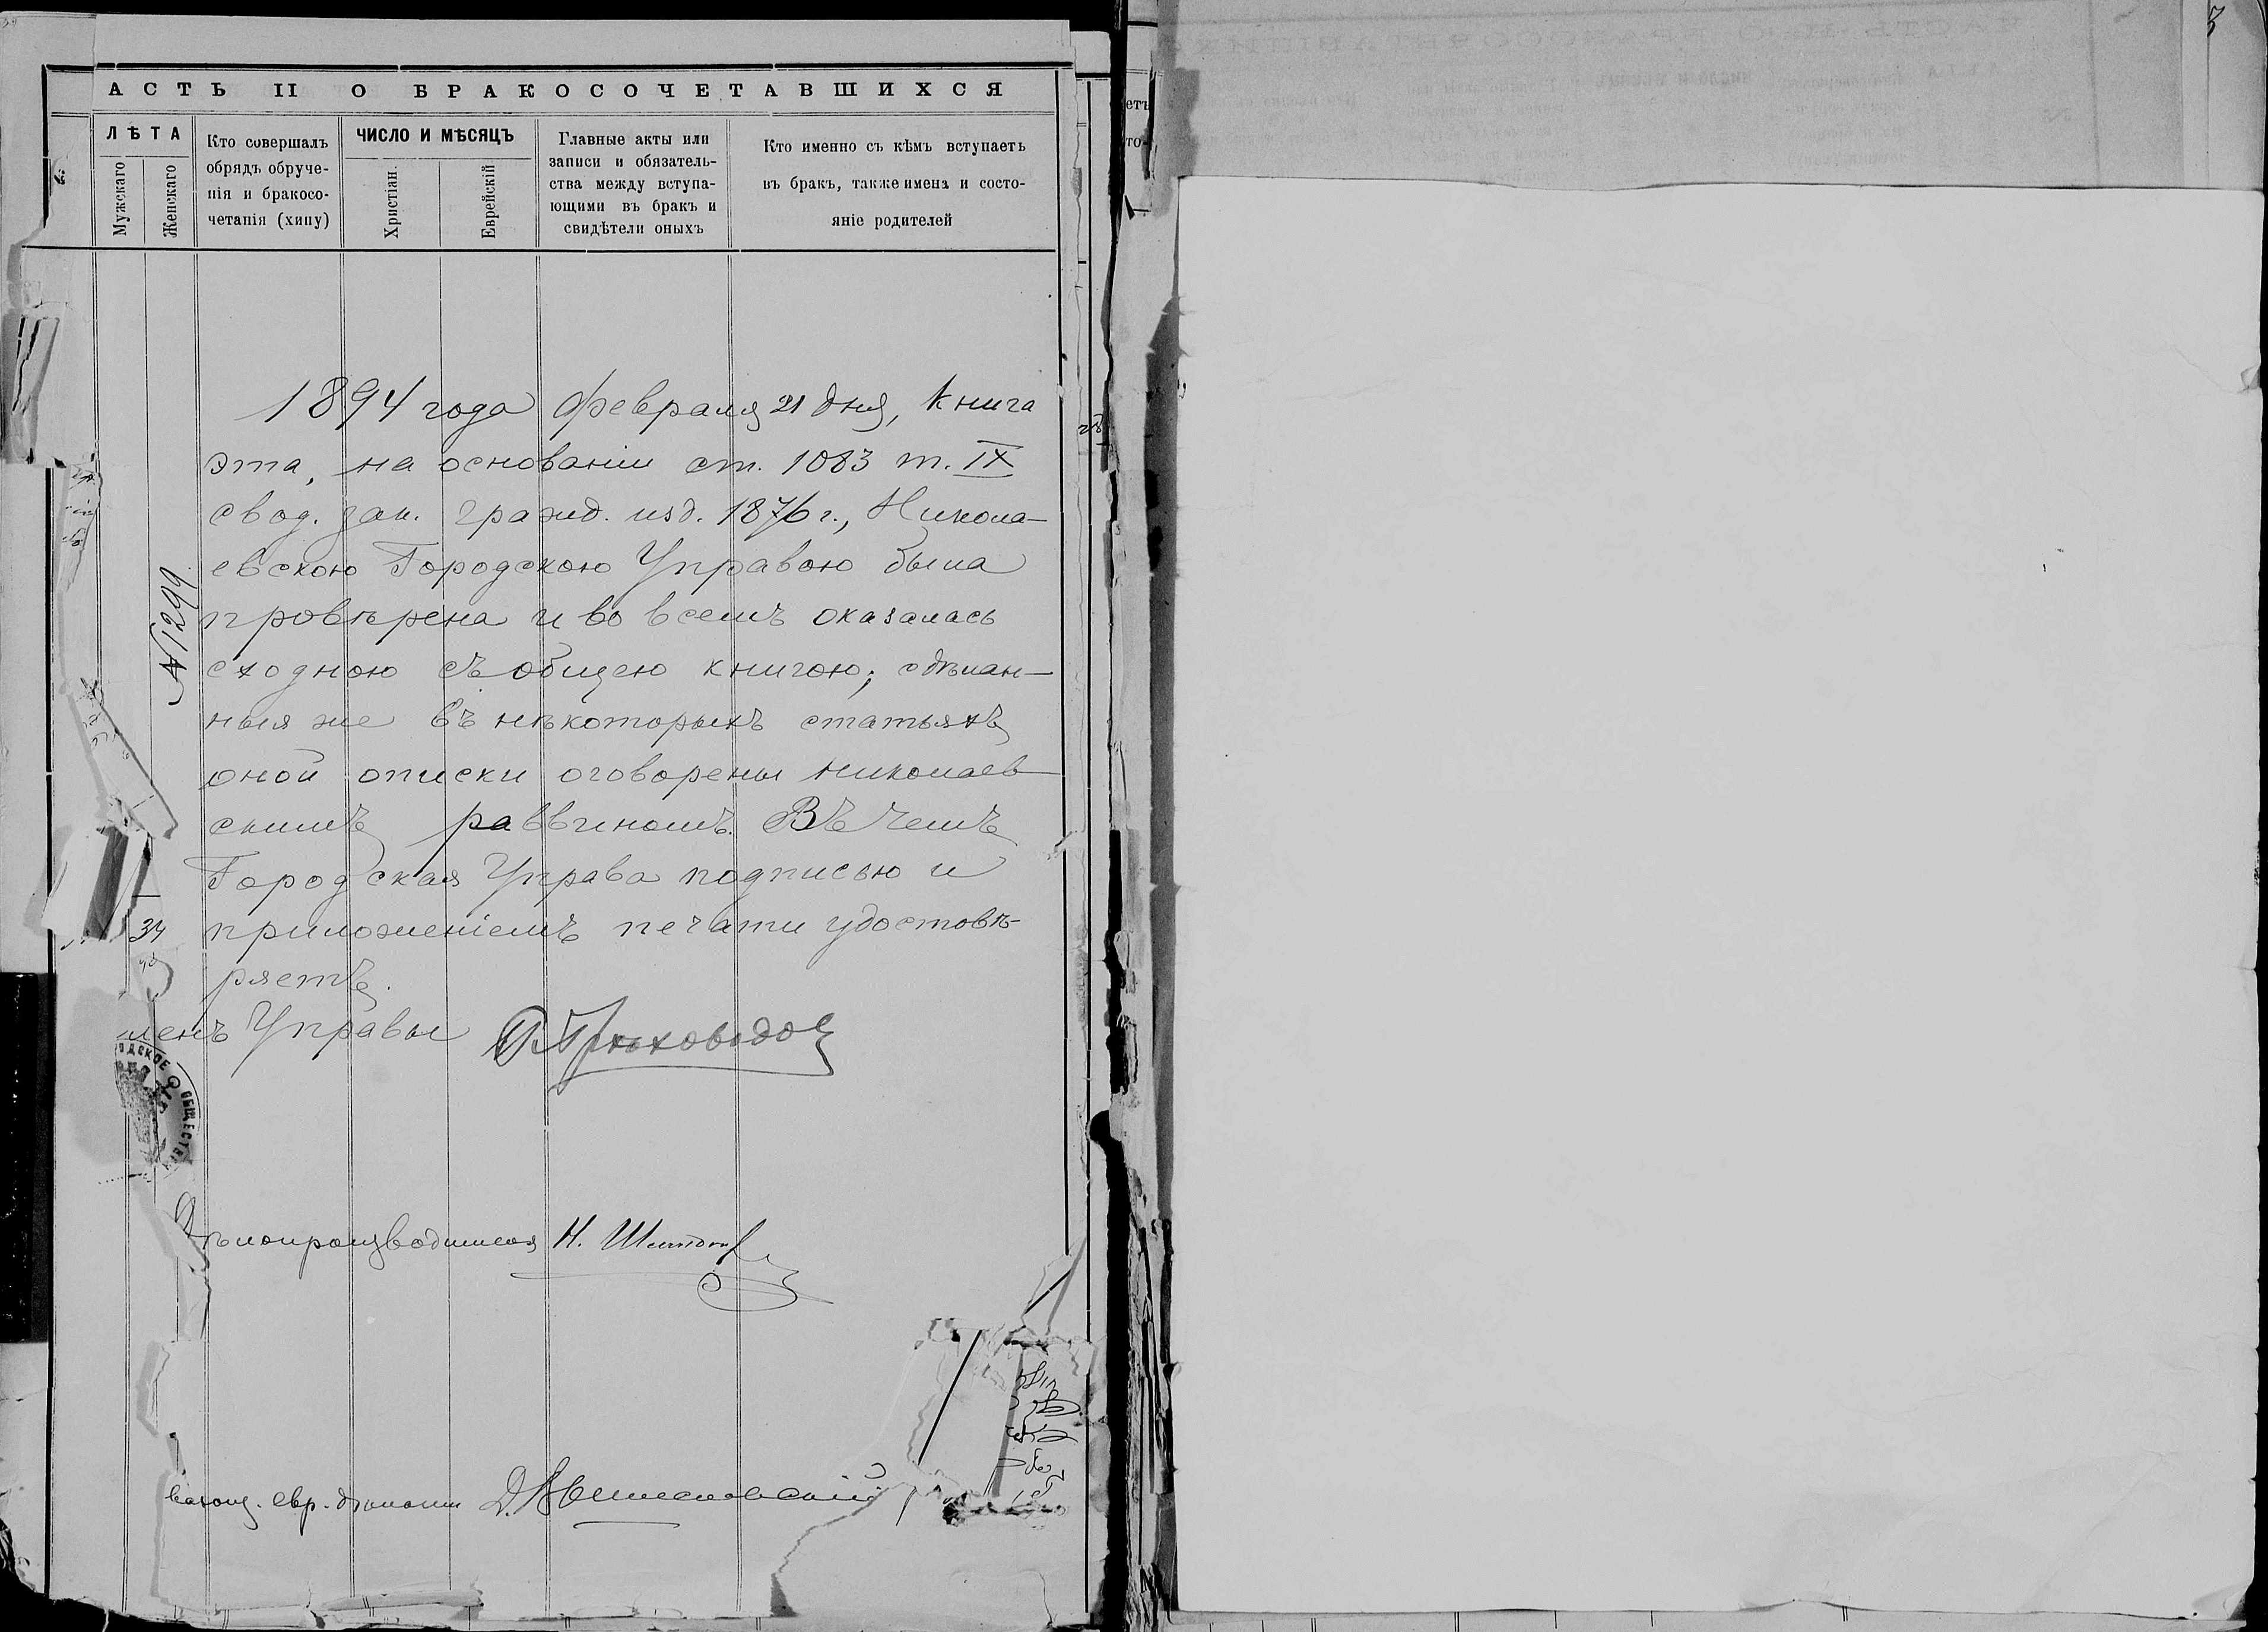 АСТЬ II О БРАКОСОЧЕТАВШИХСЯ
ЛѢТА
Мужскаго
Женскаго
Кто совершалъ
обрядъ обруче-
нія и бракосо-
четанія (хипу)
ЧИСЛО И МѢСЯЦЪ
Христіан.
Еврейскій
Главные акты или
записи и обязатель-
ства между вступа-
ющими въ бракъ и
свидѣтели оныхъ
Кто именно съ кѣмъ вступаетъ
въ бракъ, также имена и состо-
яніе родителей
1894 года февраля 21 дня, Книга
эта, на основаніи ст. 1083 т. IX
свод. зак. гражд. изд. 1876 г., Никола-
евскою Городскою Управою была
провѣрена и во всемъ оказалась
сходною съ общею книгою; сдѣлан-
ныя же въ нѣкоторыхъ статьяхъ
оной описки оговорены николаев-
скимъ раввиномъ. Въ чемъ
Городская Управа подписью и
приложеніемъ печати удостовѣ-
ряетъ.
№ 1299
34
ленъ Управы
ДСКОЕ ОБЩЕСТВЕН
Дѣлопроизводитель Н.
евр. Д.
3